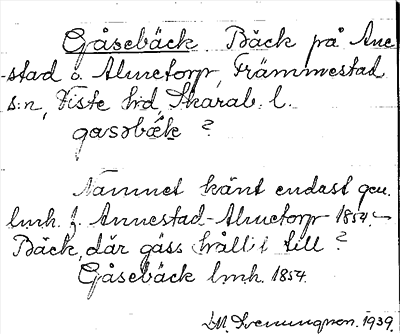 Gåsebäck. Bäck på Ane-
stad o. Almetorp, Främmestad
s:n, Viste hd, Skarab. l.
gåsəbæk ?
Namnet känt endast gen.
lmh. f. Annestad-Almetorp 1854.
Bäck, där gäss hållit till ?
Gåsebäck lmh. 1854.
M. Svenungson. 1939